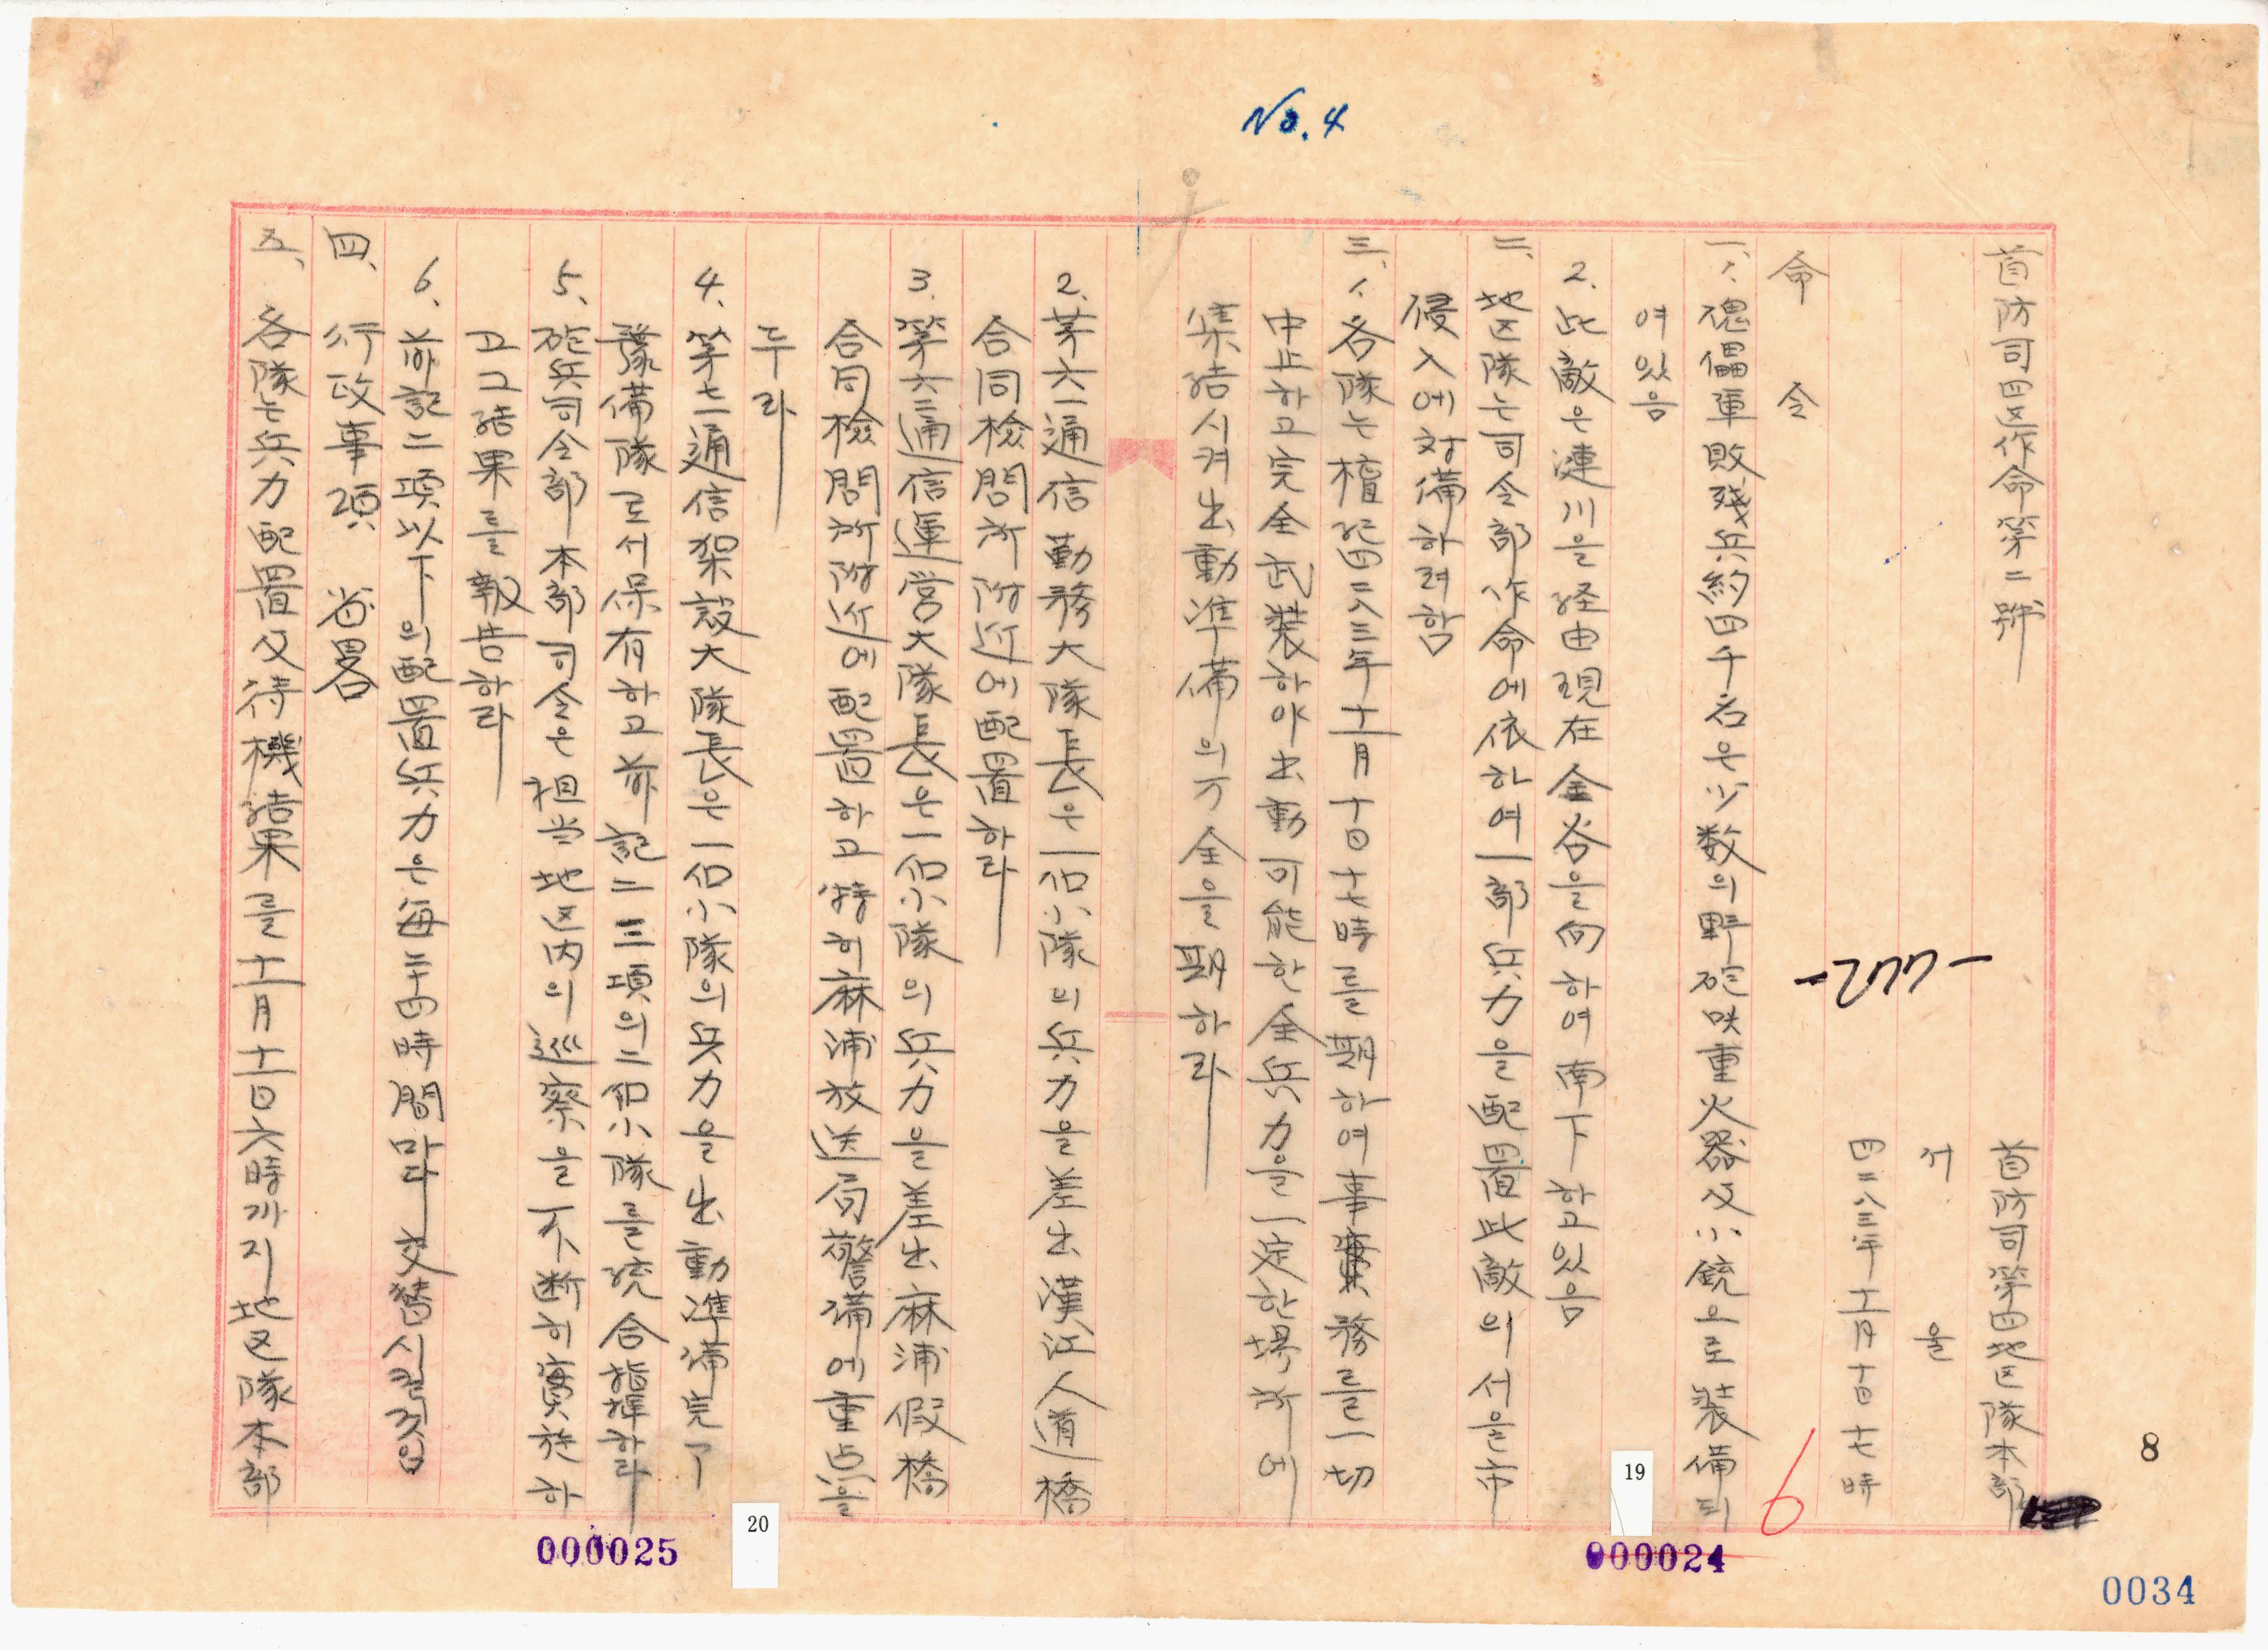 No. 4
首防司四区作命第二號
首防司第四地区隊本部
서울
四二八三年十一月十日十七時
-277-
命令
一、1. 傀儡軍敗殘兵約四千名은少数의野砲 重火器及小銃으로装備되
여있음
2. 此敵은漣川을経由現在金谷을向하여南下하고있음
二、地区隊는司令部作命에依하여一部兵力을配置此敵의서울市
侵入에対備하려함
三、1. 各隊는檀紀四二八三年十一月十日十七時를期하여事務를一切
中止하고完全武装하야出動可能한全兵力을一定한場所에
集結시켜出動準備의万全을期하라
2. 第六一通信勤務大隊長은一個小隊의兵力을差出漢江人道橋
合同檢問所附近에配置하라
3. 第六二通信運営大隊長은一個小隊의兵力을差出麻浦假橋
合同檢問所附近에配置하고特히麻浦放送局警備에重点을
두라
4. 第七一通信架設大隊長은一個小隊의兵力을出動準備完了
豫備隊로서保有하고前記二三項의二個小隊를統合指揮하라
5、砲兵司令部本部司令은担当地区内의巡察을不断히實施하
고그結果를報告하라
6、前記二項以下의配置兵力은每二十四時間마다交替시킬것임
四、行政事項 省畧
五、各隊는兵力配置及待機結果를十一月十一日六時까지地区隊本部
6
8
19
20
000025
000024
0034